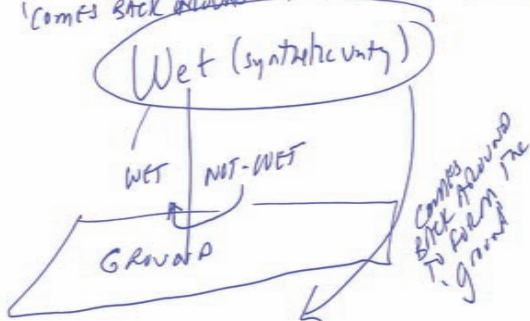 'COMES BACK AROUND
Wet (synthetic unity)
WET NOT-WET
GROUND
COMES
BACK AROUND
TO FORM THE
ground